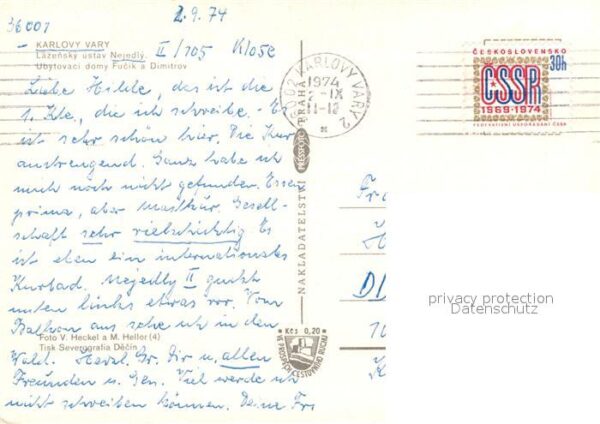 36001
2.9.74
KARLOVY VARY
Lázeňský ústav Nejedlý.
Ubytovací domy Fučík a Dimitrov
II/705 Klose
Liebe Hilde, das ist die
1. Kte, die ich schreibe. Es
ist sehr schön hier. Die Kur
anstrengend. Ganz habe ich
mich noch nicht gefunden. Essen
prima, aber Mastkur. Gesell-
schaft sehr vielschichtig. Es
ist eben ein internationales
Kurbad. Nejedly II guckt
unten links etwas vor. Vom
Balkon aus sehe ich in den
Foto V. Heckel a M. Heller (4)
Tisk Severografia Děčín
Wald. Herzl. Gr. Dir u. allen
Freunden u. Gen. Viel werde ich
nicht schreiben können. Deine
360 02 KARLOVY VARY 2
1974
IX
ČESKOSLOVENSKO
30h
ČSSR
1969-1974
FEDERATIVNÍ USPOŘÁDÁNÍ ČSSR
NAKLADATELSTVÍ PRESSFOTO PRAHA
Kčs 0,20
VE PROSPĚCH CESTOVNÍHO RUCHU
privacy protection
Datenschutz